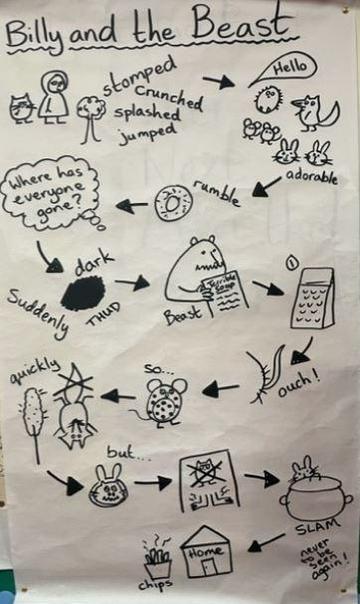 Billy and the Beast
stomped
Crunched
splashed
jumped
Hello
adorable
rumble
Where has
everyone
gone?
dark
Suddenly
THUD
Beast
Terrible
Soup
1
ouch!
so...
quickly
but...
SLAM
never
to be
seen
again!
Home
chips